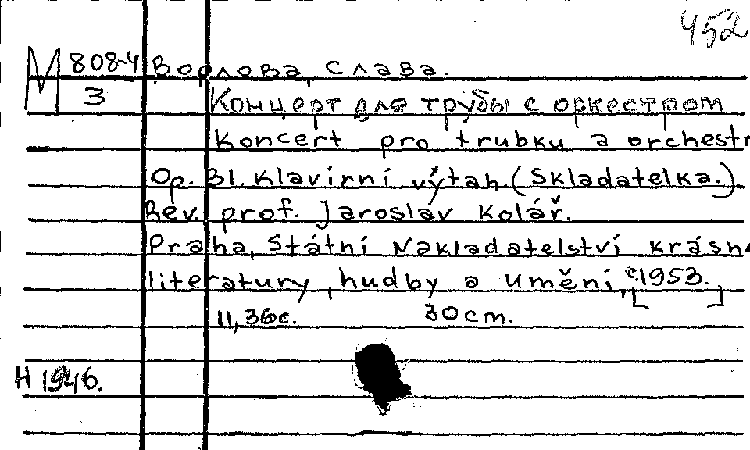 452
М 808-4 Ворлова, Слава.
3 Концерт для трубы с оркестром
Koncert pro trubku a orchestr
Op. 31. Klavírní výtah. (Skladatelka.)
Rev. prof. Jaroslav Kolář.
Praha, Státní Nakladatelství krásn
literatury, hudby a umění, [c1953.]
11, 36c. 30cm.
H 1946.